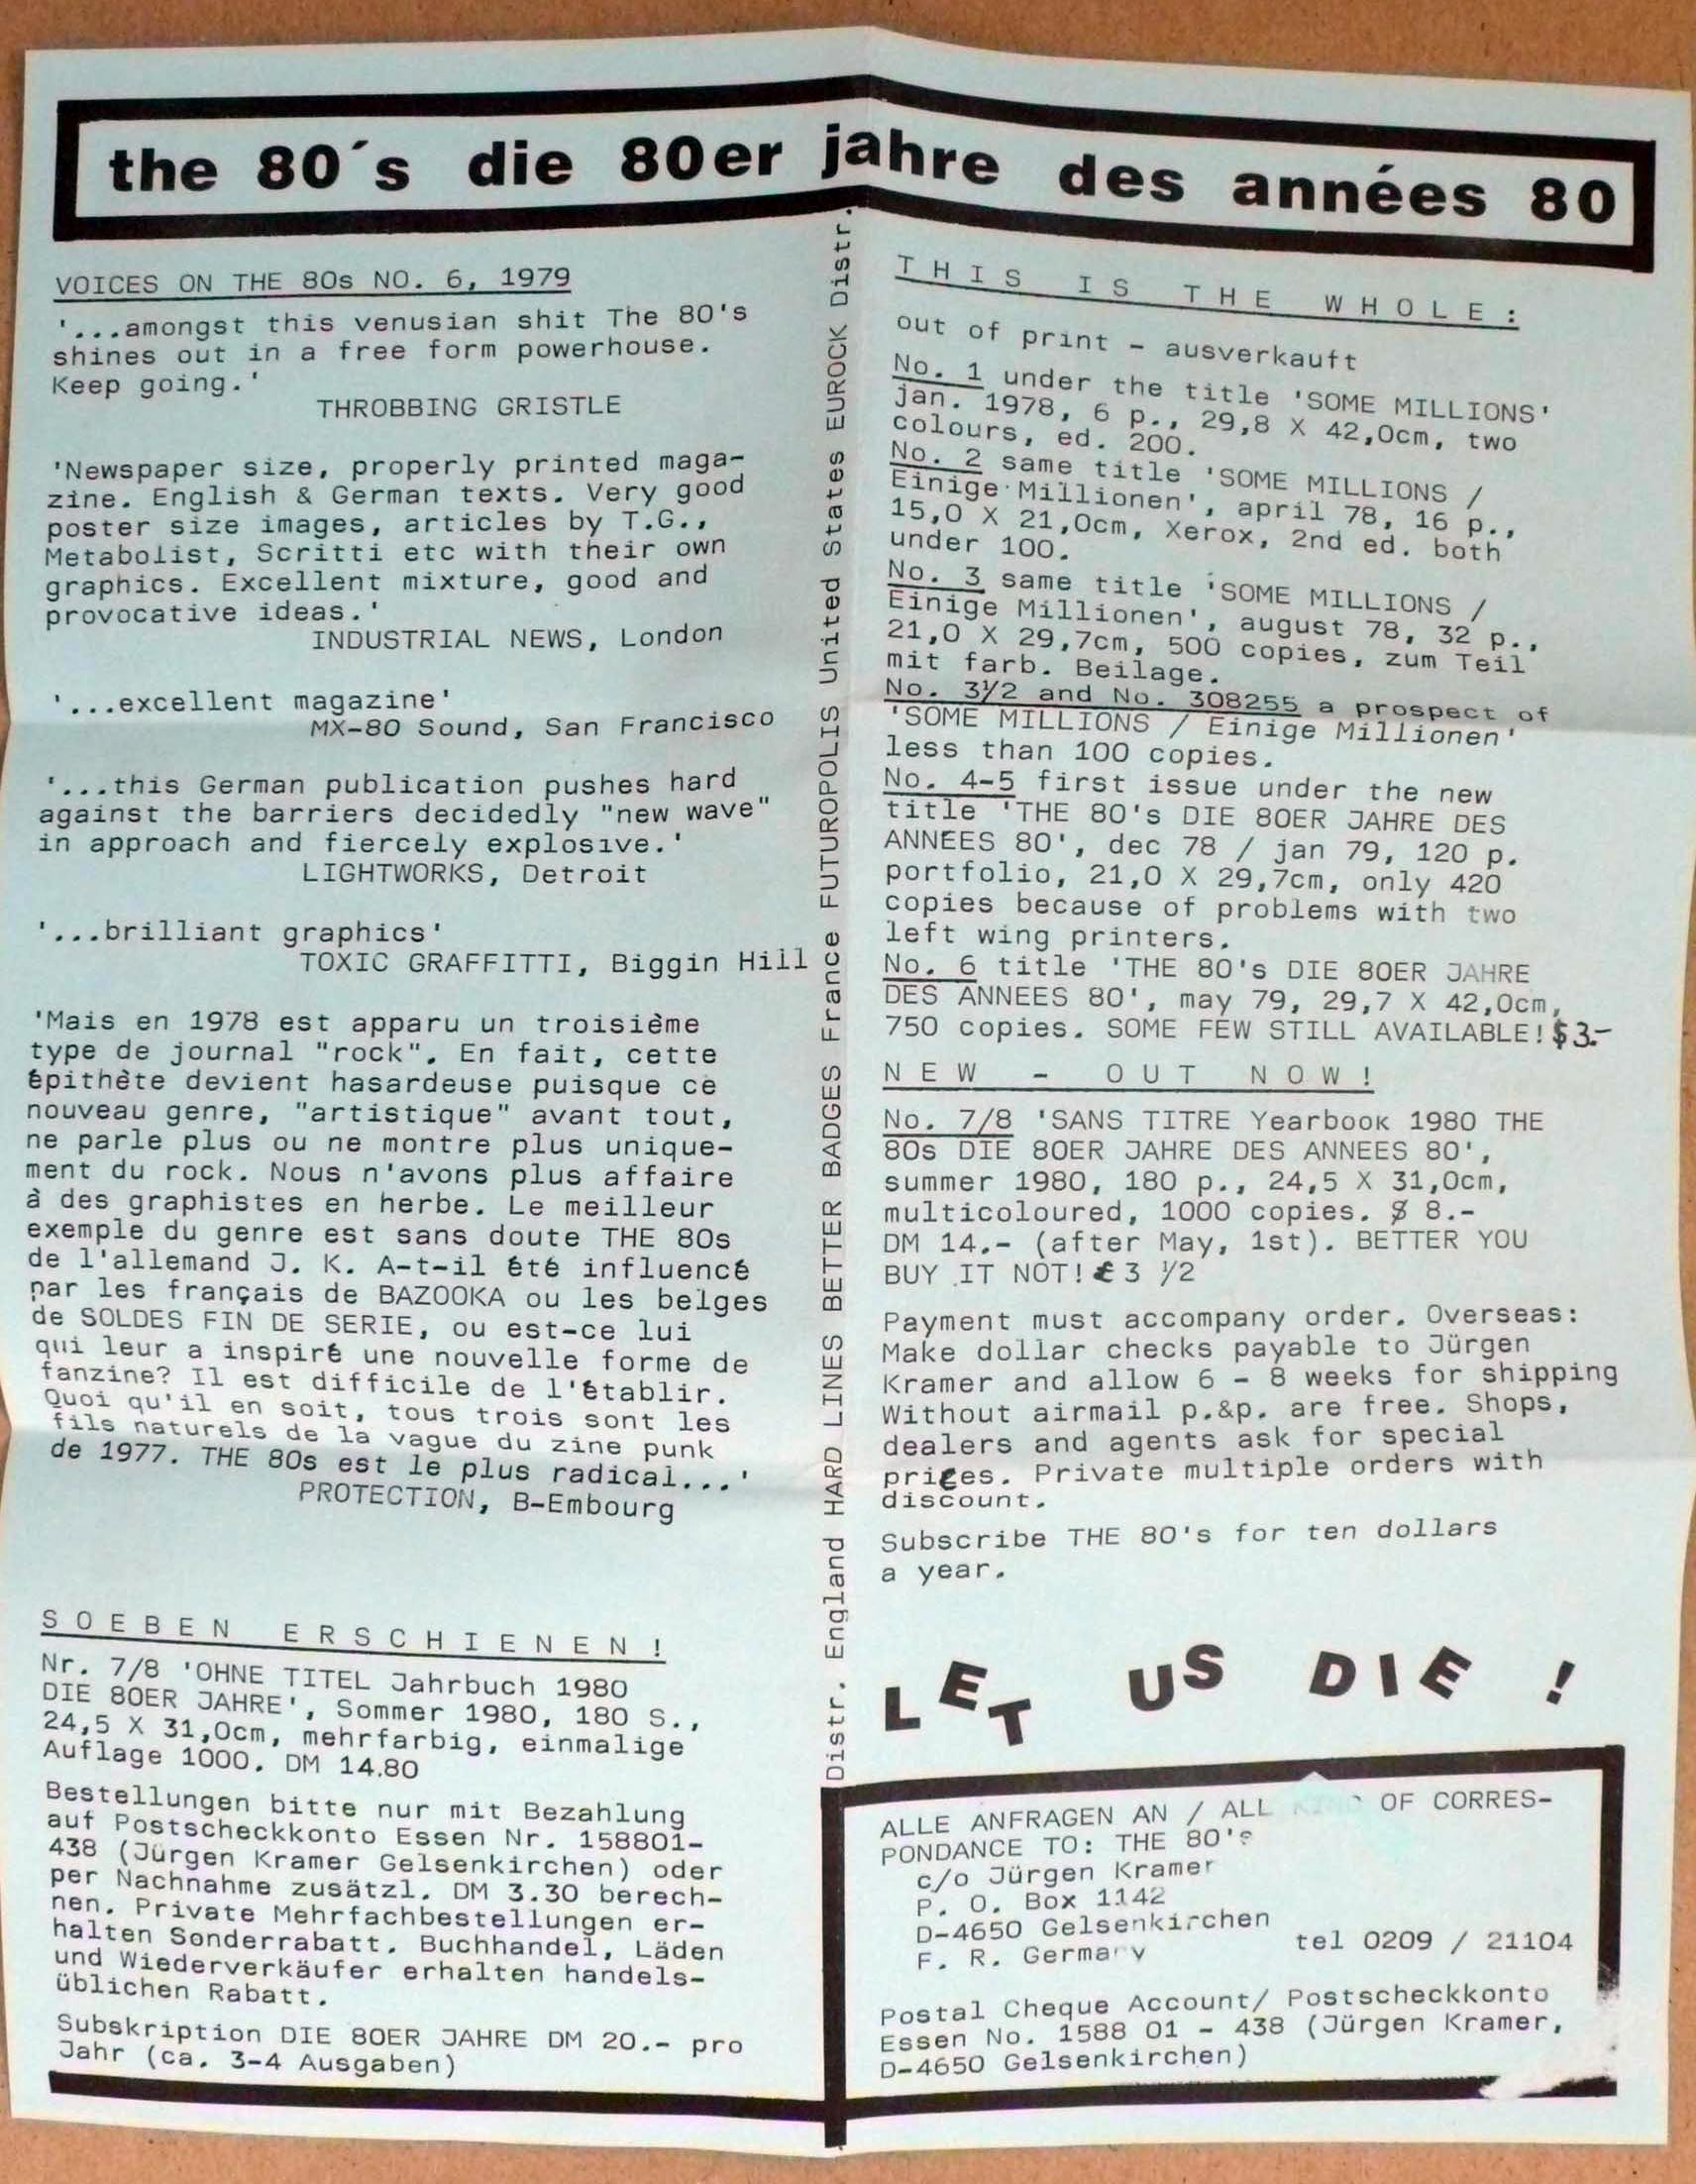 the 80´s die 80er jahre des années 80
VOICES ON THE 80s NO. 6, 1979
'...amongst this venusian shit The 80's
shines out in a free form powerhouse.
Keep going.'
THROBBING GRISTLE
'Newspaper size, properly printed maga-
zine. English & German texts. Very good
poster size images, articles by T.G.,
Metabolist, Scritti etc with their own
graphics. Excellent mixture, good and
provocative ideas.'
INDUSTRIAL NEWS, London
'...excellent magazine'
MX-80 Sound, San Francisco
'...this German publication pushes hard
against the barriers decidedly "new wave"
in approach and fiercely explosive.'
LIGHTWORKS, Detroit
'...brilliant graphics'
TOXIC GRAFFITTI, Biggin Hill
'Mais en 1978 est apparu un troisième
type de journal "rock". En fait, cette
épithète devient hasardeuse puisque ce
nouveau genre, "artistique" avant tout,
ne parle plus ou ne montre plus unique-
ment du rock. Nous n'avons plus affaire
à des graphistes en herbe. Le meilleur
exemple du genre est sans doute THE 80s
de l'allemand J. K. A-t-il été influencé
par les français de BAZOOKA ou les belges
de SOLDES FIN DE SERIE, ou est-ce lui
qui leur a inspiré une nouvelle forme de
fanzine? Il est difficile de l'établir.
Quoi qu'il en soit, tous trois sont les
fils naturels de la vague du zine punk
de 1977. THE 80s est le plus radical...'
PROTECTION, B-Embourg
SOEBEN ERSCHIENEN!
Nr. 7/8 'OHNE TITEL Jahrbuch 1980
DIE 80ER JAHRE', Sommer 1980, 180 S.,
24,5 X 31,0cm, mehrfarbig, einmalige
Auflage 1000. DM 14.80
Bestellungen bitte nur mit Bezahlung
auf Postscheckkonto Essen Nr. 158801-
438 (Jürgen Kramer Gelsenkirchen) oder
per Nachnahme zusätzl. DM 3.30 berech-
nen. Private Mehrfachbestellungen er-
halten Sonderrabatt. Buchhandel, Läden
und Wiederverkäufer erhalten handels-
üblichen Rabatt.
Subskription DIE 80ER JAHRE DM 20.- pro
Jahr (ca. 3-4 Ausgaben)
Distr. England HARD LINES BETTER BADGES France FUTUROPOLIS United States EUROCK Distr.
THIS IS THE WHOLE:
out of print - ausverkauft
No. 1 under the title 'SOME MILLIONS'
jan. 1978, 6 p., 29,8 X 42,0cm, two
colours, ed. 200.
No. 2 same title 'SOME MILLIONS /
Einige Millionen', april 78, 16 p.,
15,0 X 21,0cm, Xerox, 2nd ed. both
under 100.
No. 3 same title 'SOME MILLIONS /
Einige Millionen', august 78, 32 p.,
21,0 X 29,7cm, 500 copies, zum Teil
mit farb. Beilage.
No. 3½ and No. 308255 a prospect of
'SOME MILLIONS / Einige Millionen'
less than 100 copies.
No. 4-5 first issue under the new
title 'THE 80's DIE 80ER JAHRE DES
ANNEES 80', dec 78 / jan 79, 120 p.
portfolio, 21,0 X 29,7cm, only 420
copies because of problems with two
left wing printers.
No. 6 title 'THE 80's DIE 80ER JAHRE
DES ANNEES 80', may 79, 29,7 X 42,0cm,
750 copies. SOME FEW STILL AVAILABLE! $3.-
NEW - OUT NOW!
No. 7/8 'SANS TITRE Yearbook 1980 THE
80s DIE 80ER JAHRE DES ANNEES 80',
summer 1980, 180 p., 24,5 X 31,0cm,
multicoloured, 1000 copies. $ 8.-
DM 14.- (after May, 1st). BETTER YOU
BUY IT NOT! £3 ½
Payment must accompany order. Overseas:
Make dollar checks payable to Jürgen
Kramer and allow 6 - 8 weeks for shipping
Without airmail p.&p. are free. Shops,
dealers and agents ask for special
prices. Private multiple orders with
discount.
Subscribe THE 80's for ten dollars
a year.
LET US DIE !
ALLE ANFRAGEN AN / ALL KIND OF CORRES-
PONDANCE TO: THE 80's
c/o Jürgen Kramer
P. O. Box 1142
D-4650 Gelsenkirchen
F. R. Germany tel 0209 / 21104
Postal Cheque Account/ Postscheckkonto
Essen No. 1588 01 - 438 (Jürgen Kramer,
D-4650 Gelsenkirchen)